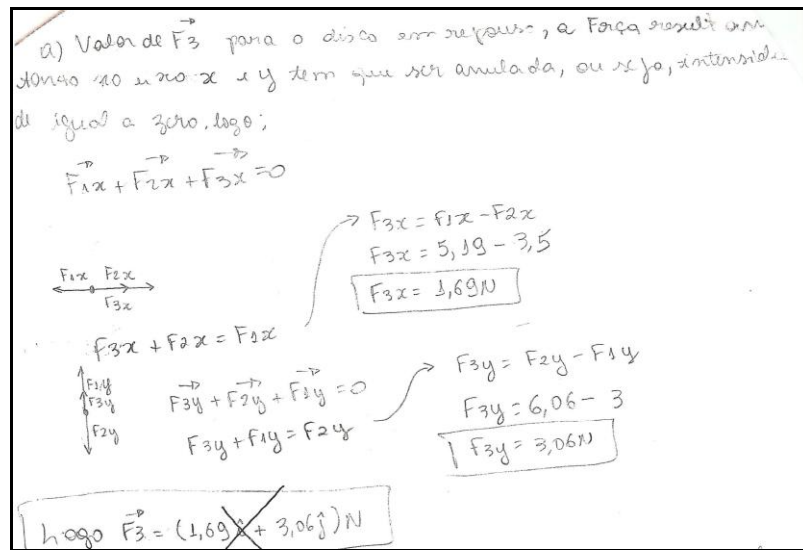 a) Valor de F3 para o disco em repouso, a Força result
tanto no eixo x e y tem que ser anulada, ou seja, intensida
de igual a zero. logo;
F1x + F2x + F3x = 0
F3x = F1x - F2x
F3x = 5,19 - 3,5
F3x = 1,69N
F1x F2x
F3x
F3x + F2x = F1x
F1y
F3y
F2y
F3y + F2y + F1y = 0
F3y + F1y = F2y
F3y = F2y - F1y
F3y = 6,06 - 3
F3y = 3,06N
Logo F3 = (1,69 î + 3,06 ĵ) N